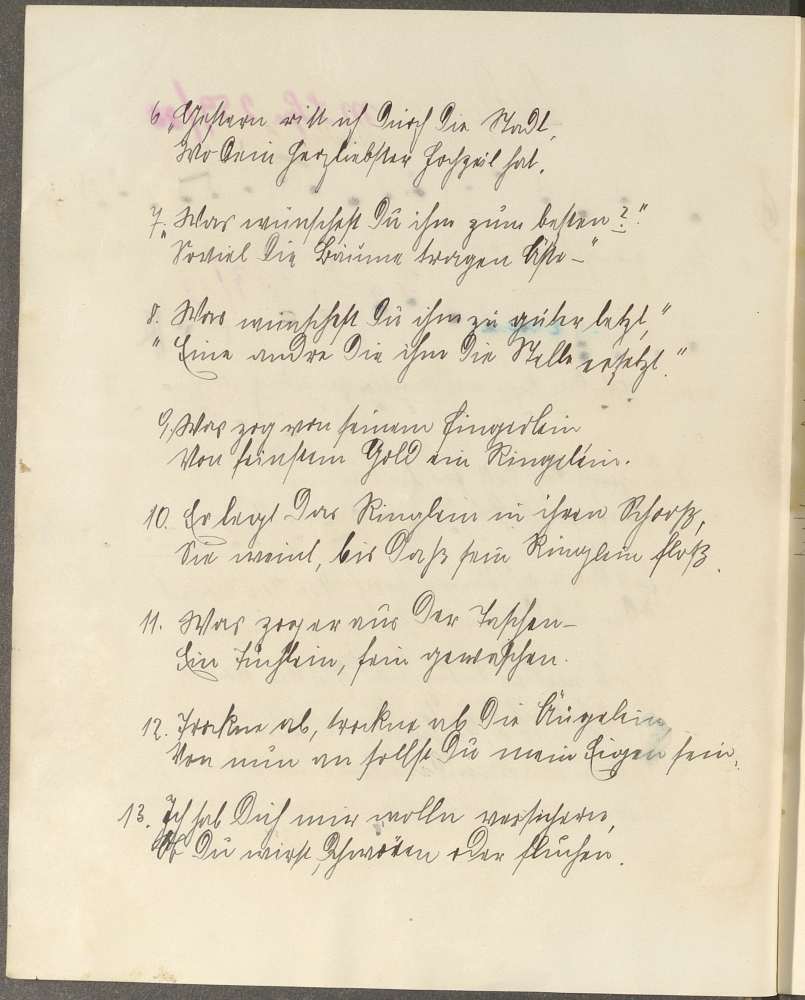 6. „Gestern ritt ich durch die Stadt,
Wo dein Herzliebster Hochzeit hat.
7. „Was wünschest Du ihm zum besten?“
„Soviel die Bäume tragen Äste –“
8. Was wünschest Du ihm zu guter letzt,“
„Eine andre die ihm die Stelle ersetzt.“
9. Was zog von seinem Fingerlein
Von feinstem Gold ein Ringelein.
10. Er legt das Ringlein in ihren Schooß,
Sie weint, bis daß sein Ringlein floß.
11. Was zog er aus der Taschen –
Ein Tüchlein, fein gewaschen.
12. Trockne ab, trockne ab die Äugelein,
Von nun an sollst Du mein Eigen sein.
13. Ich hab Dich mir wolln versichern,
Ob Du wirst schwören oder fluchen.